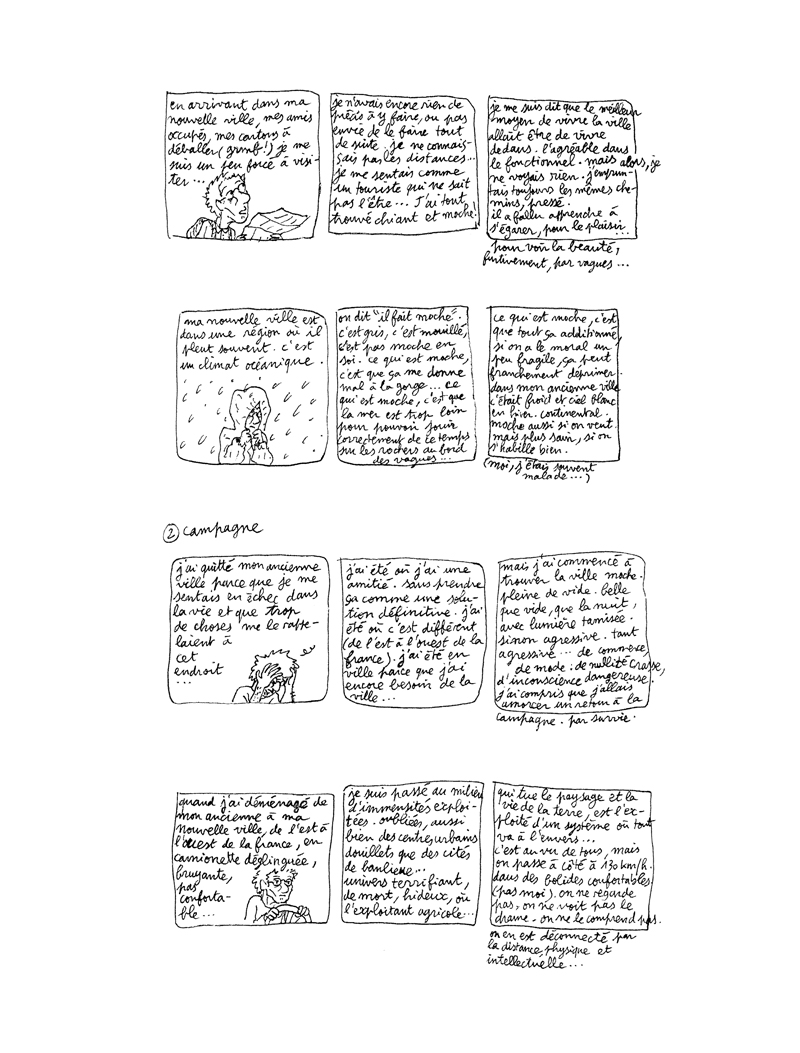 en arrivant dans ma
nouvelle ville, mes amis
occupés, mes cartons à
déballer (grmf!) je me
suis un peu forcé à visi-
ter...
je n'avais encore rien de
précis à y faire, ou pas
envie de le faire tout
de suite. je ne connais-
sais pas les distances...
je me sentais comme
un touriste qui ne sait
pas l'être... J'ai tout
trouvé chiant et moche!
je me suis dit que le meilleur
moyen de vivre la ville
allait être de vivre
dedans. l'agréable dans
le fonctionnel. mais alors, je
ne voyais rien. j'emprun-
tais toujours les mêmes che-
mins, pressé.
il a fallu apprendre à
s'égarer, pour le plaisir...
pour voir la beauté,
furtivement, par vagues...
ma nouvelle ville est
dans une région où il
pleut souvent. c'est
un climat océanique.
on dit "il fait moche".
c'est gris, c'est mouillé,
c'est pas moche en
soi. ce qui est moche,
c'est que ça me donne
mal à la gorge... ce
qui est moche, c'est que
la mer est trop loin
pour pouvoir jouir
correctement de ce temps
sur les rochers au bord
des vagues...
ce qui est moche, c'est
que tout ça additionné,
si on a le moral un
peu fragile, ça peut
franchement déprimer.
dans mon ancienne ville
c'était froid et ciel blanc
en hiver. continental.
moche aussi si on veut.
mais plus sain, si on
s'habille bien.
(moi, j'étais souvent
malade...)
② campagne
j'ai quitté mon ancienne
ville parce que je me
sentais en échec dans
la vie et que trop
de choses me le rappe-
laient à
cet
endroit
...
j'ai été où j'ai une
amitié. sans prendre
ça comme une solu-
tion définitive. j'ai
été où c'est différent
(de l'est à l'ouest de la
france). j'ai été en
ville parce que j'ai
encore besoin de la
ville...
mais j'ai commencé à
trouver la ville moche.
pleine de vide. belle
que vide, que la nuit,
avec lumière tamisée.
sinon agressive. tant
agressive... de commerce,
de mode: de nullité crasse,
d'inconscience dangereuse.
j'ai compris que j'allais
amorcer un retour à la
campagne. par survie.
quand j'ai déménagé de
mon ancienne à ma
nouvelle ville, de l'est à
l'ouest de la france, en
camionette déglinguée,
bruyante,
pas
conforta-
ble...
je suis passé au milieu
d'immensités exploi-
tées. oubliées, aussi
bien des centres urbains
douillets que des cités
de banlieue...
univers terrifiant,
de mort, hideux, où
l'exploitant agricole...
qui tue le paysage et la
vie de la terre, est l'ex-
ploité d'un système où tout
va à l'envers...
c'est au vu de tous, mais
on passe à côté à 130 km/h.
dans des bolides confortables
(pas moi). on ne regarde
pas, on ne voit pas le
drame. on ne le comprend pas.
on en est déconnecté par
la distance, physique et
intellectuelle...